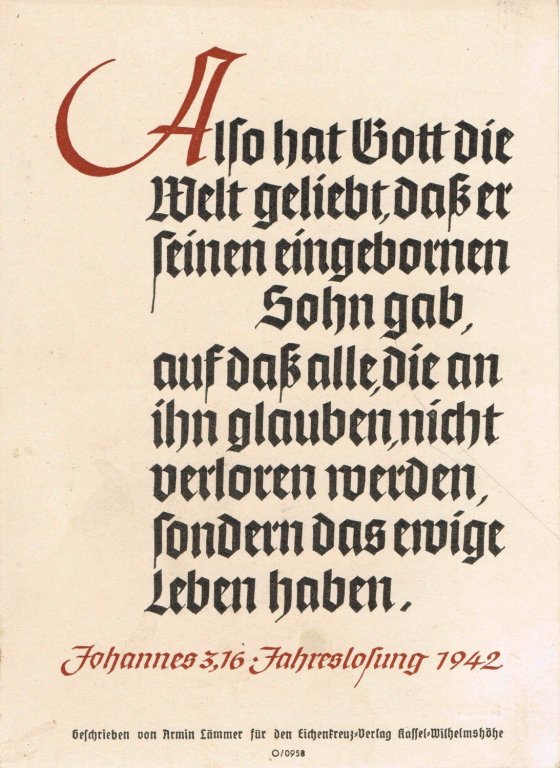 Also hat Gott die
Welt geliebt, daß er
seinen eingebornen
Sohn gab,
auf daß alle, die an
ihn glauben, nicht
verloren werden,
sondern das ewige
Leben haben.
Johannes 3,16 · Jahreslosung 1942
Geschrieben von Armin Lämmer für den Eichenkreuz-Verlag Kassel-Wilhelmshöhe
O/0958